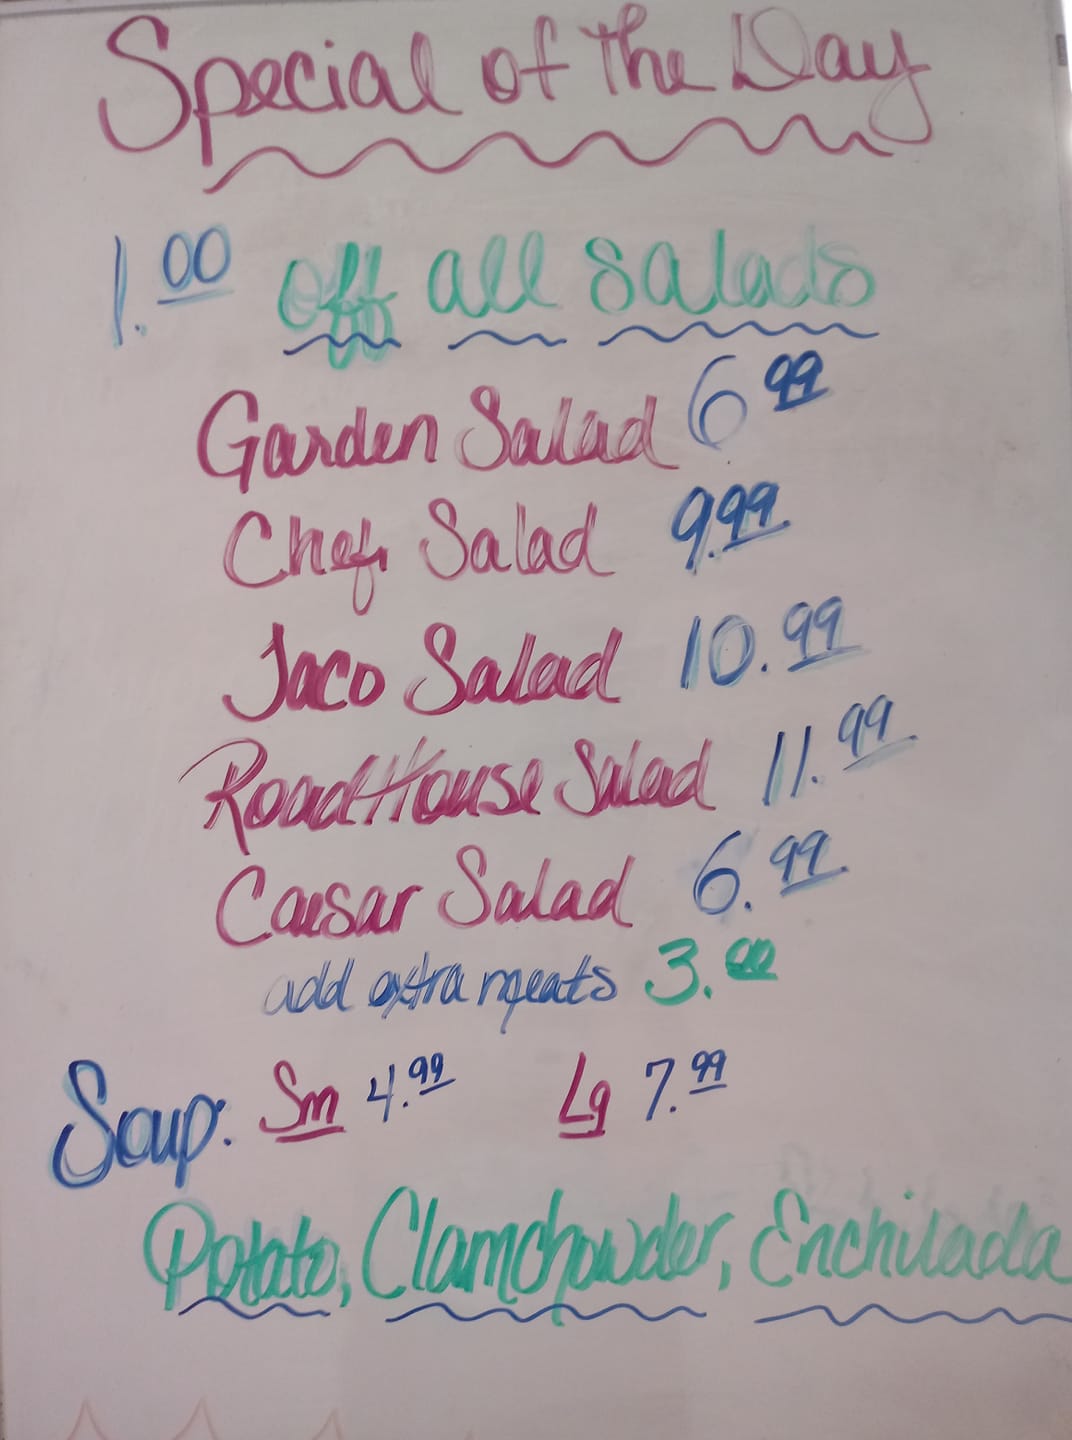 Special of The Day
1.00 off all Salads
Garden Salad 6.99
Chef Salad 9.99
Taco Salad 10.99
RoadHouse Salad 11.99
Caesar Salad 6.99
add extra meats 3.00
Soup: Sm 4.99 Lg 7.99
Potato, Clamchowder, Enchilada